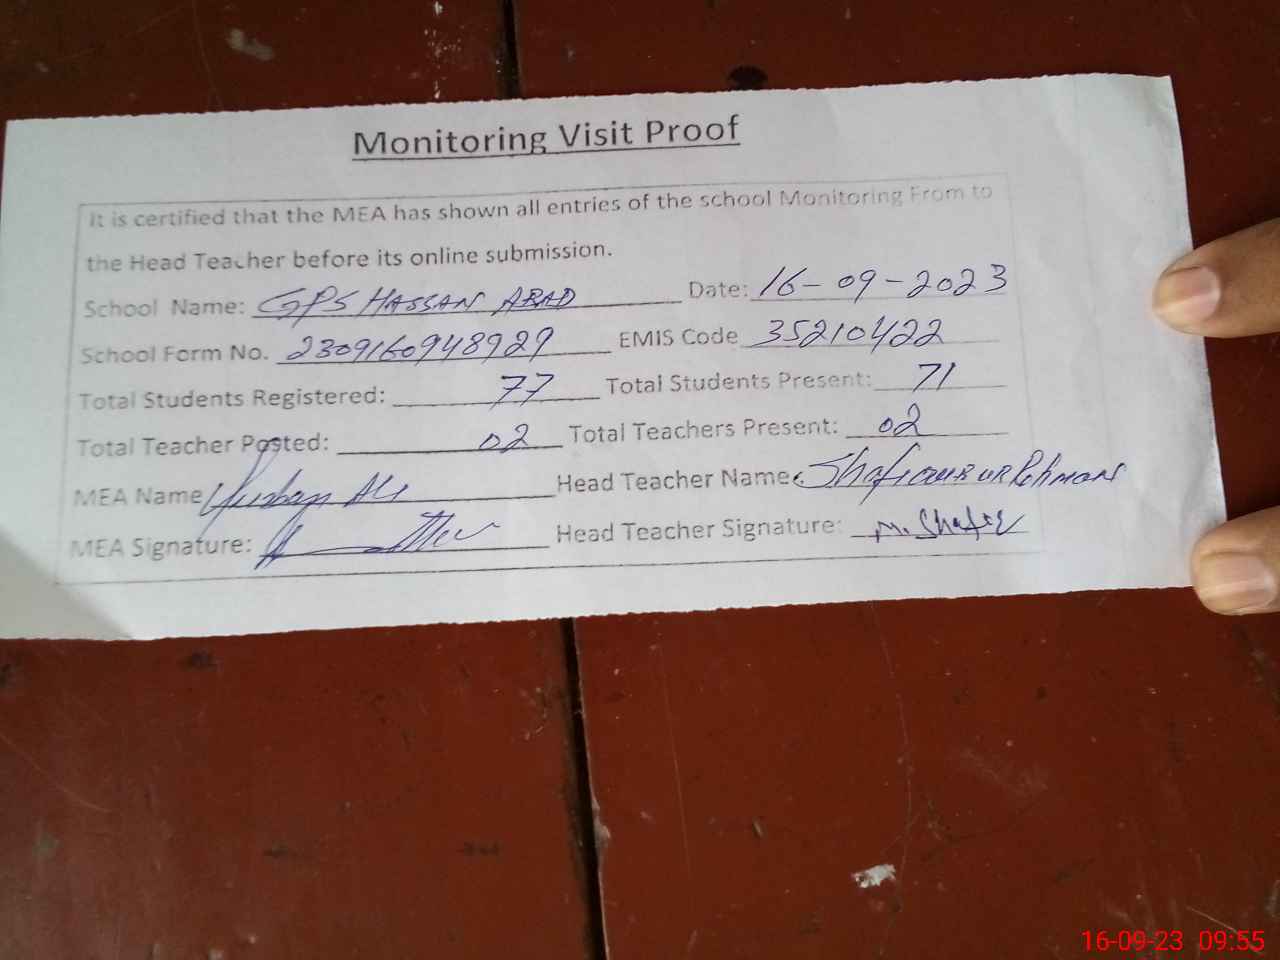 Monitoring Visit Proof
It is certified that the MEA has shown all entries of the school Monitoring From to
the Head Teacher before its online submission.
School Name: GPS HASSAN ABAD Date: 16-09-2023
School Form No. 2309160948929 EMIS Code 35210422
Total Students Registered: 77 Total Students Present: 71
Total Teacher Posted: 02 Total Teachers Present: 02
MEA Name Ali Head Teacher Name: UR Rehman
MEA Signature: Head Teacher Signature: M. Shafiq
16-09-23 09:55